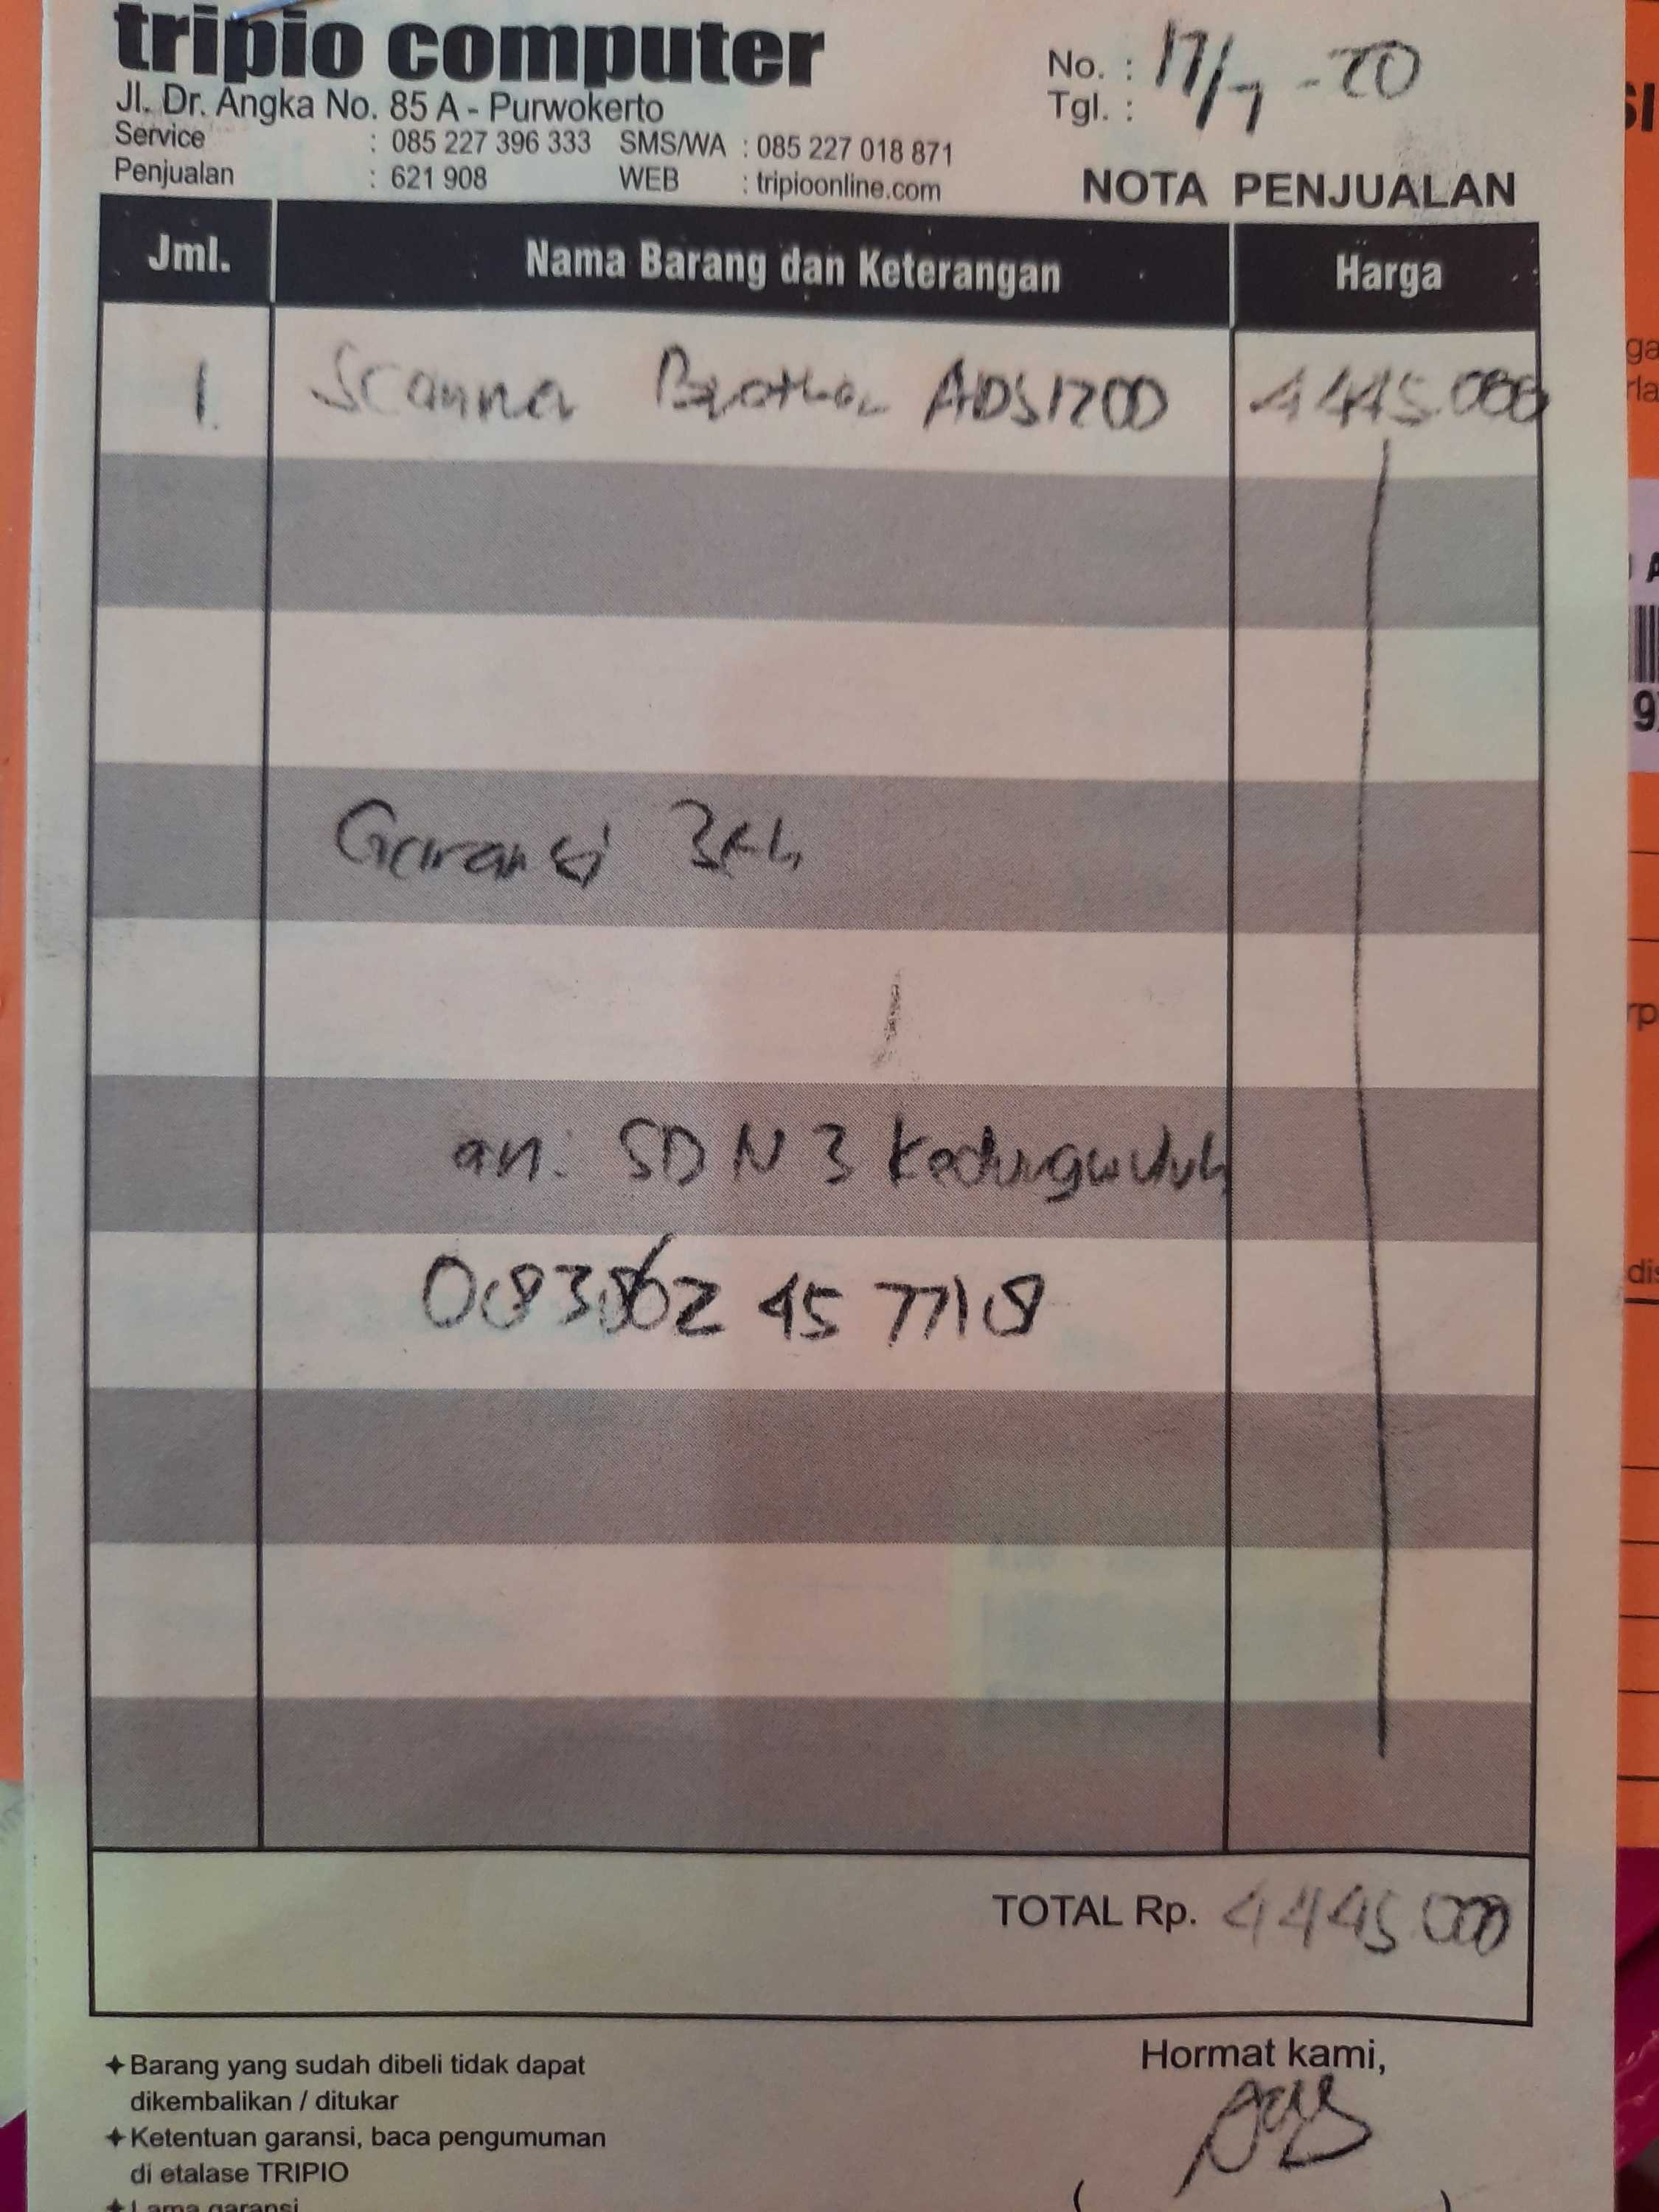 tripio computer
Jl. Dr. Angka No. 85 A - Purwokerto
Service : 085 227 396 333 SMS/WA : 085 227 018 871
Penjualan : 621 908 WEB : tripioonline.com
No. :
Tgl. : 17/7-20
NOTA PENJUALAN
Jml. Nama Barang dan Keterangan Harga
1. Scanner Brother ADS1200 4445.000
Garansi 3th
an: SDN 3 Kedungwuluh
45 7718
TOTAL Rp. 4445.000
✦ Barang yang sudah dibeli tidak dapat
dikembalikan / ditukar
✦ Ketentuan garansi, baca pengumuman
di etalase TRIPIO
✦ Lama garansi
Hormat kami,
( )